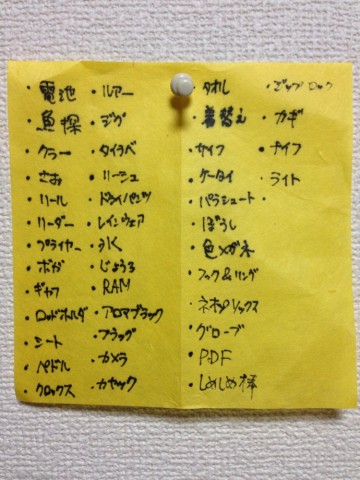 ・電池
・魚探
・クラー
・さお
・リール
・リーダー
・プライヤー
・ボガ
・ギャフ
・ロッドホルダ
・シート
・パドル
・クロックス
・ルアー
・ジグ
・タイラバ
・リーシュ
・ドライパンツ
・レインウェア
・じょうろ
・RAM
・アロマブラック
・フラッグ
・カメラ
・カヤック
・タオル
・着替え
・サイフ
・ケータイ
・パラシュート
・ぼうし
・色メガネ
・フック&リング
・ネオプソックス
・グローブ
・PDF
・しめしめ棒
・ジップロック
・カギ
・ナイフ
・ライト